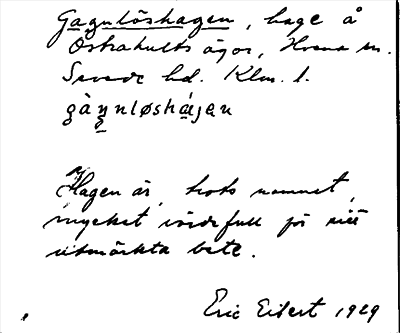 Gagnlöshagen, hage å
Östrahults ägor, Hvena sn.
Sevede hd. Klm. l.
gàŋnløshá̀jen
Hagen är, trots namnet,
mycket värdefull för sitt
utmärkta bete.
Eric Eilert 1929